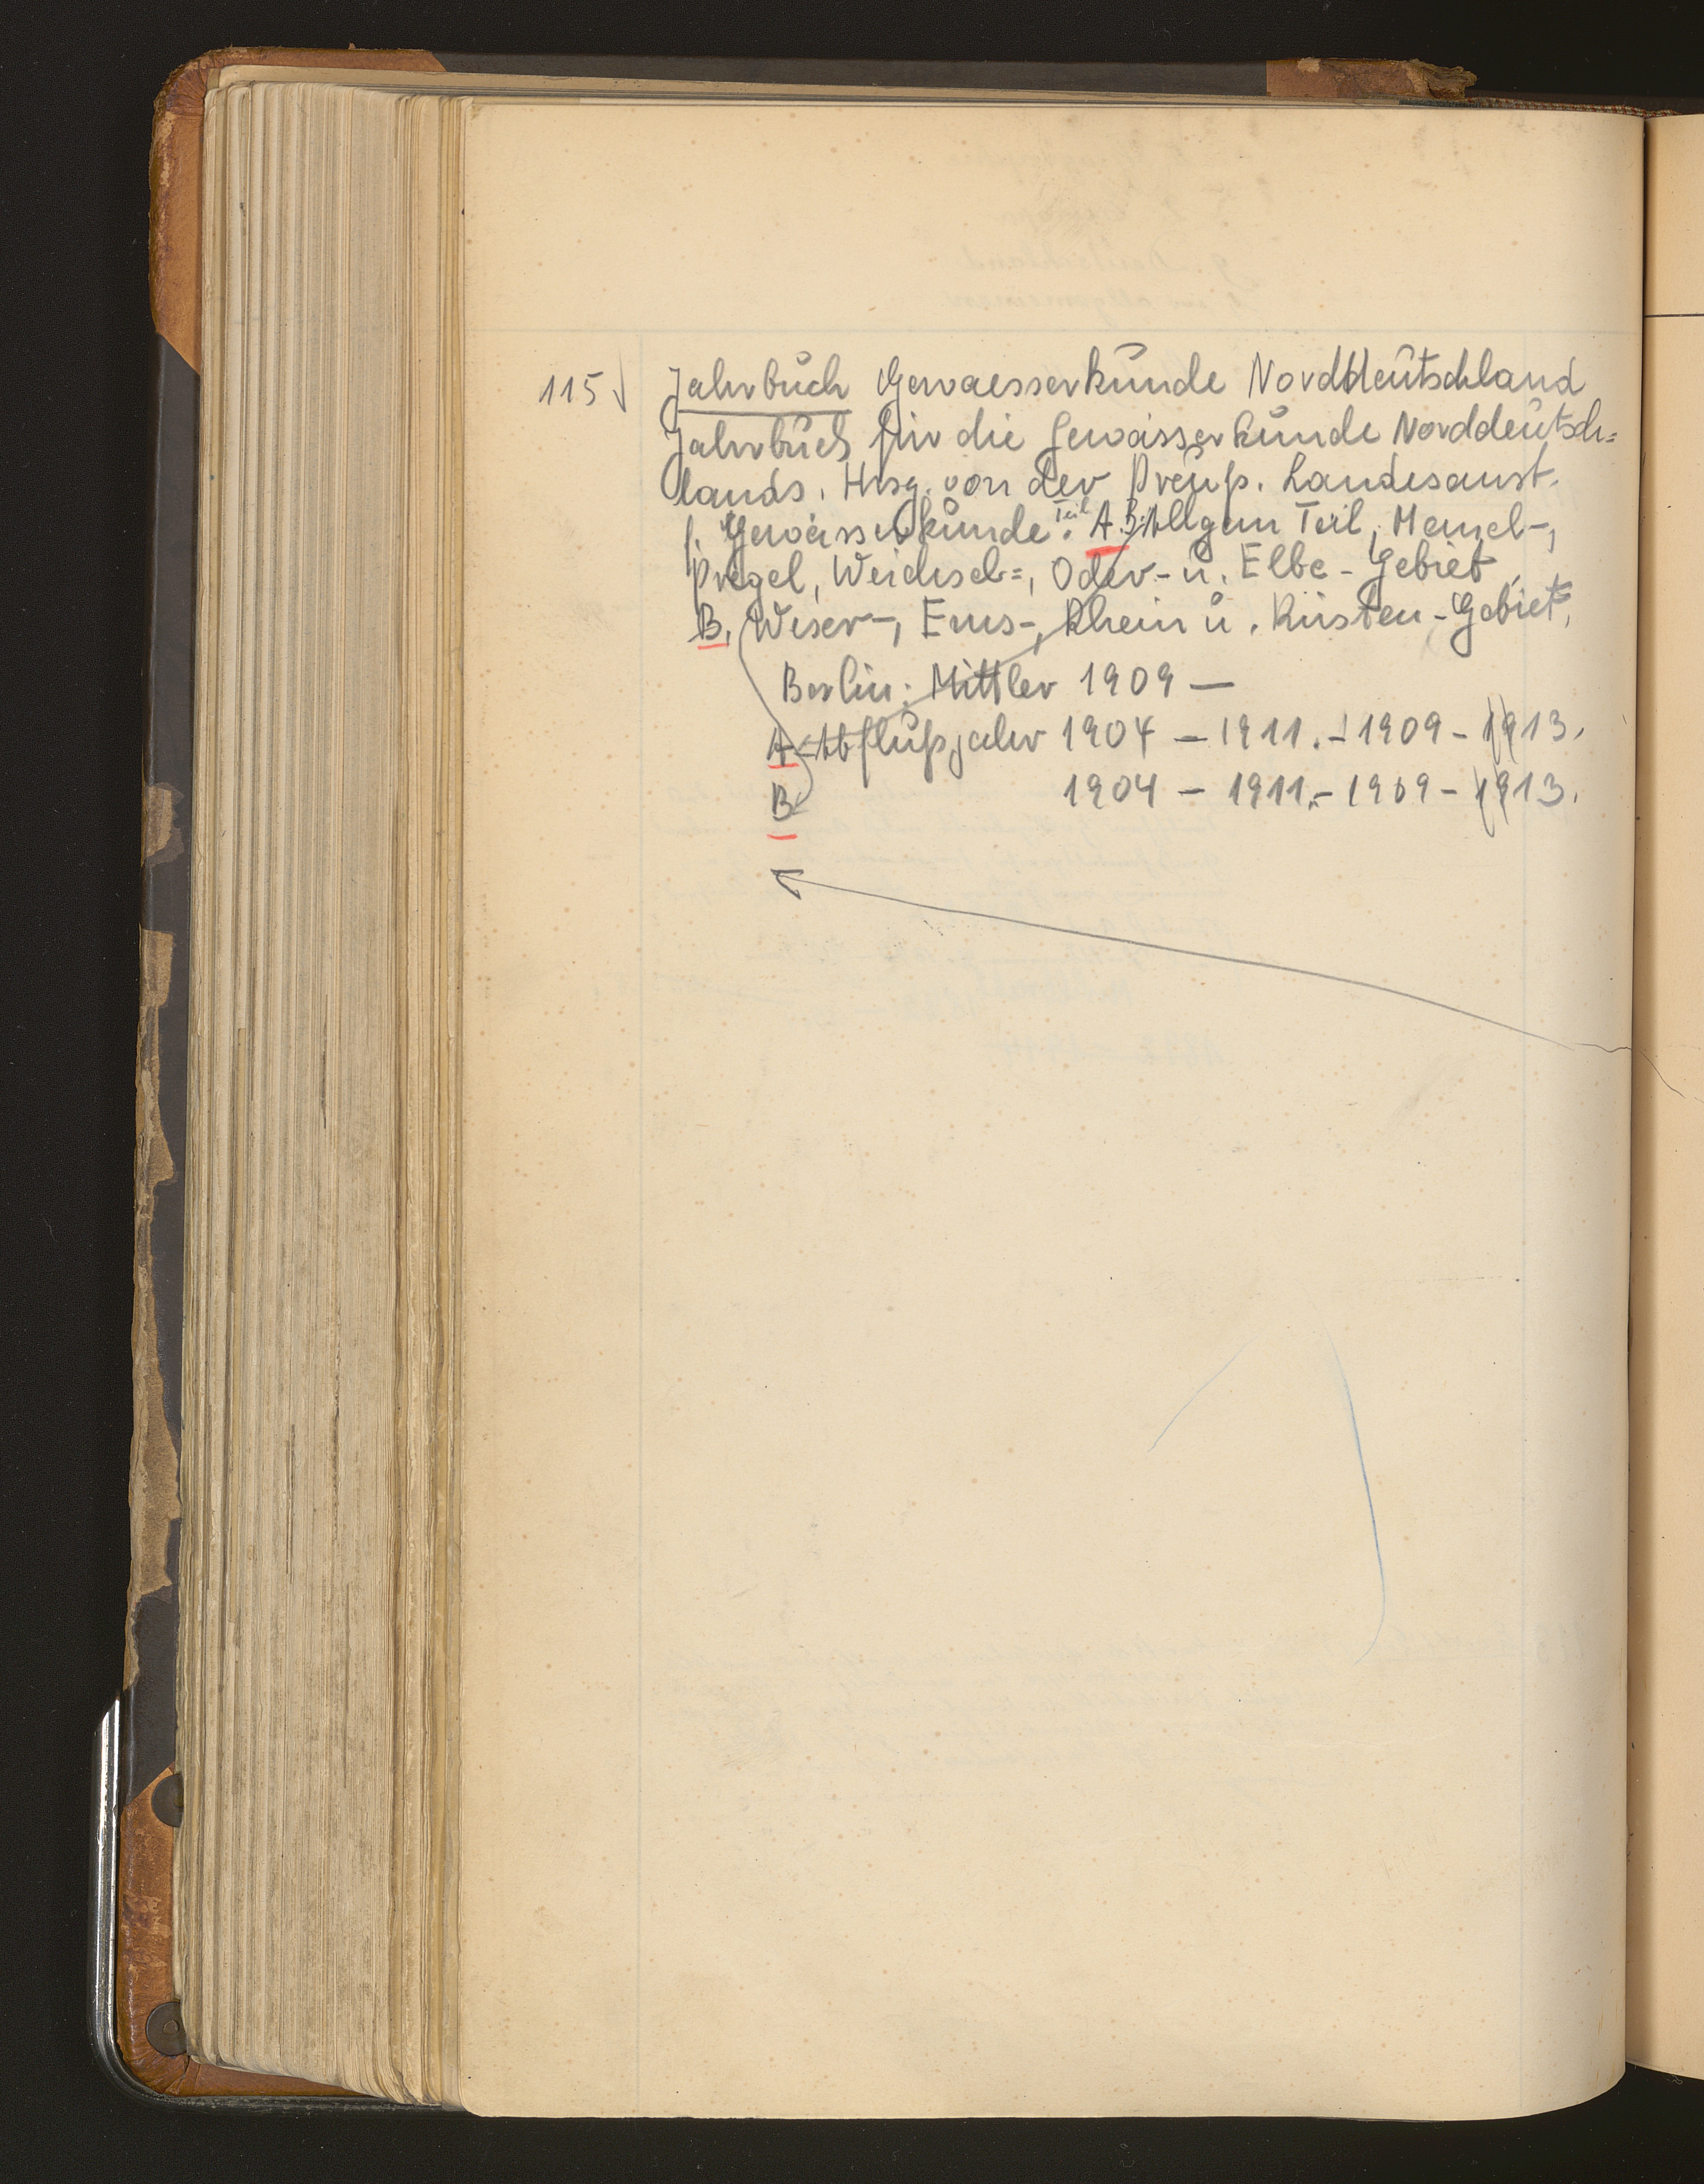 115 Jahrbuch Gewaesserkunde Norddeutschland
Jahrbuch für die Gewässerkunde Norddeutsch=
lands. Hrsg. von der Preuß. Landesanst.
f. Gewässerkunde. Teil A. Allgem Teil, Memel-,
Pregel, Weichsel=, Oder- u. Elbe-Gebiet,
B. Weser-, Ems-, Rhein u. Küsten-Gebiet,
Berlin: Mittler 1909 —
A Abflußjahr 1904 — 1911. - 1909 - 1913.
B 1904 — 1911. - 1909 - 1913.